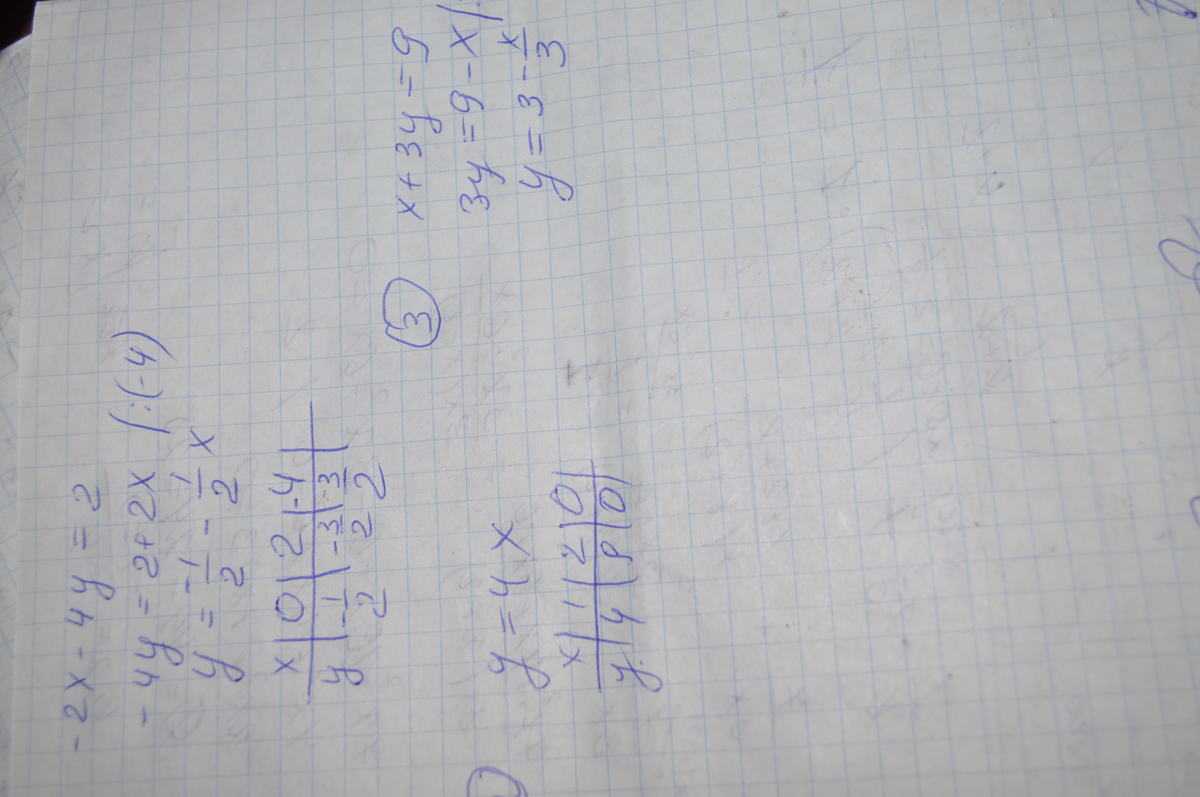 -2x - 4y = 2
-4y = 2+2x /:(-4)
y = -1/2 - 1/2 x
x | 0 | 2 | -4 |
y | -1/2 | -3/2 | 3/2 |
y = 4x
x | 1 | 2 | 0 |
y | 4 | 8 | 0 |
3
x + 3y = 9
3y = 9 - x /:
y = 3 - x/3